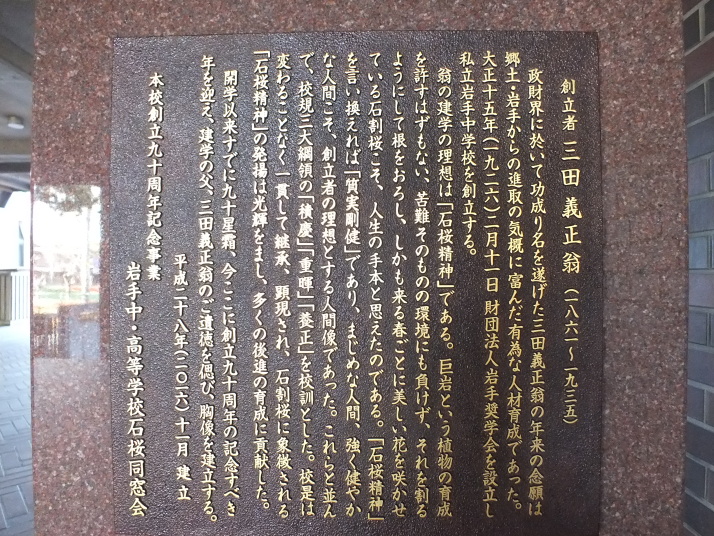 創立者 三田義正翁(一八六一〜一九三五)
政財界に於いて功成り名を遂げた三田義正翁の年来の念願は
郷土・岩手からの進取の気概に富んだ有為な人材育成であった。
大正十五年(一九二六)二月十一日 財団法人岩手奨学会を設立し
私立岩手中学校を創立する。
翁の建学の理想は「石桜精神」である。巨岩という植物の育成
を許すはずもない、苦難そのものの環境にも負けず、それを割る
ようにして根をおろし、しかも来る春ごとに美しい花を咲かせ
ている石割桜こそ、人生の手本と思えたのである。「石桜精神」
を言い換えれば「質実剛健」であり、まじめな人間、強く健やか
な人間こそ、創立者の理想とする人間像であった。これらと並ん
で、校規三大綱領の「積慶」「重暉」「養正」を校訓とした。校是は
変わることなく一貫して継承、顕現され、石割桜に象徴される
「石桜精神」の発揚は光輝をまし、多くの後進の育成に貢献した。
開学以来すでに九十星霜、今ここに創立九十周年の記念すべき
年を迎え、建学の父、三田義正翁のご遺徳を偲び、胸像を建立する。
平成二十八年(二〇一六)十一月 建立
本校創立九十周年記念事業
岩手中・高等学校石桜同窓会